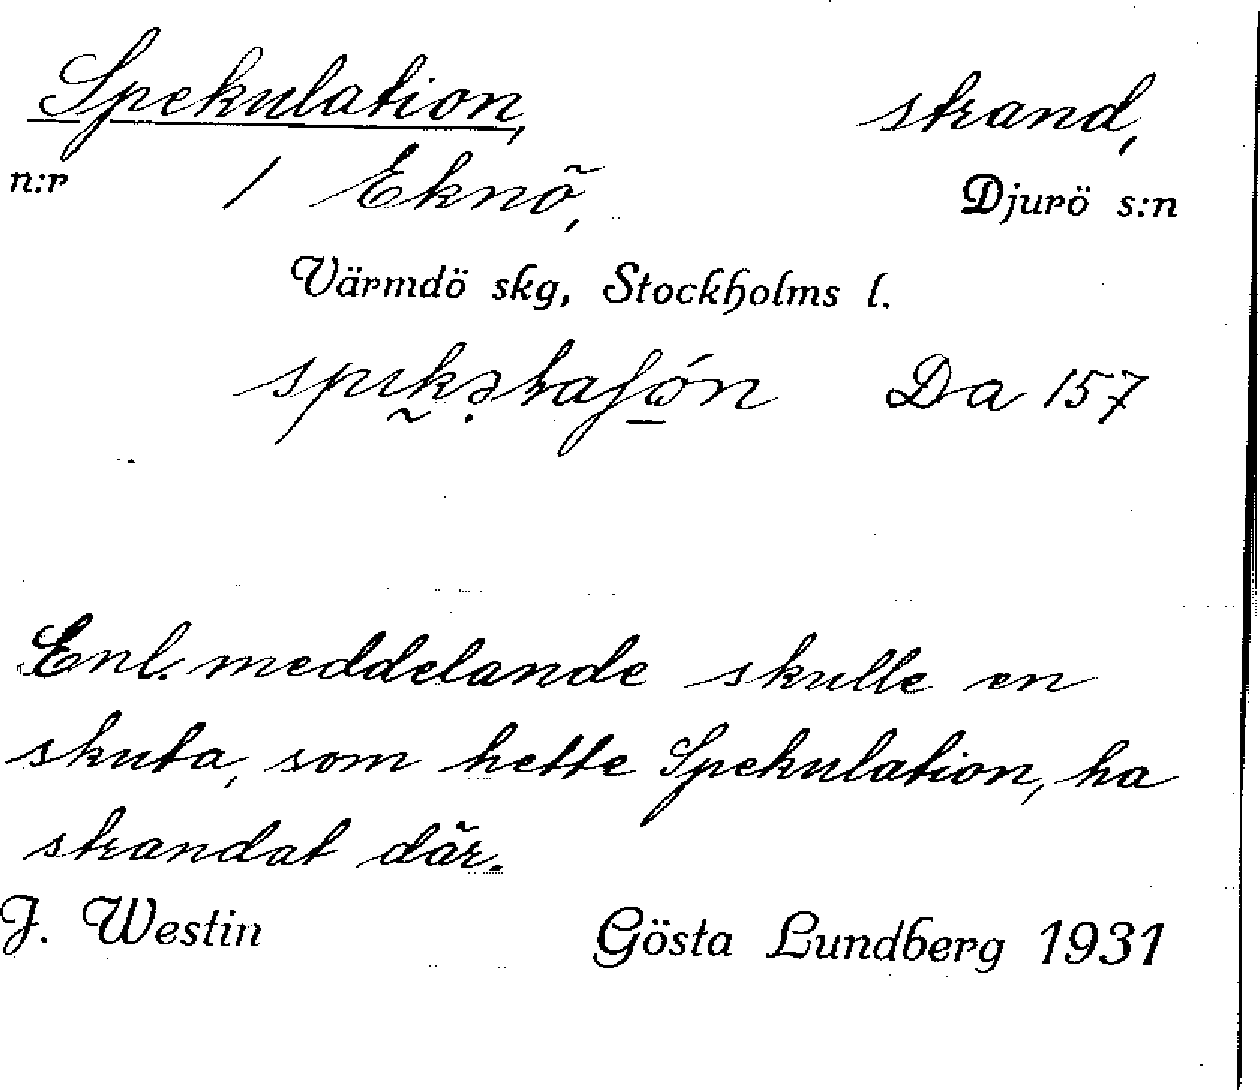 Spekulation, strand,
n:r 1 Eknö, Djurö s:n
Värmdö skg, Stockholms l.
Da 157
Enl. meddelande skulle en
skuta, som hette Spekulation, ha
strandat där.
J. Westin Gösta Lundberg 1931